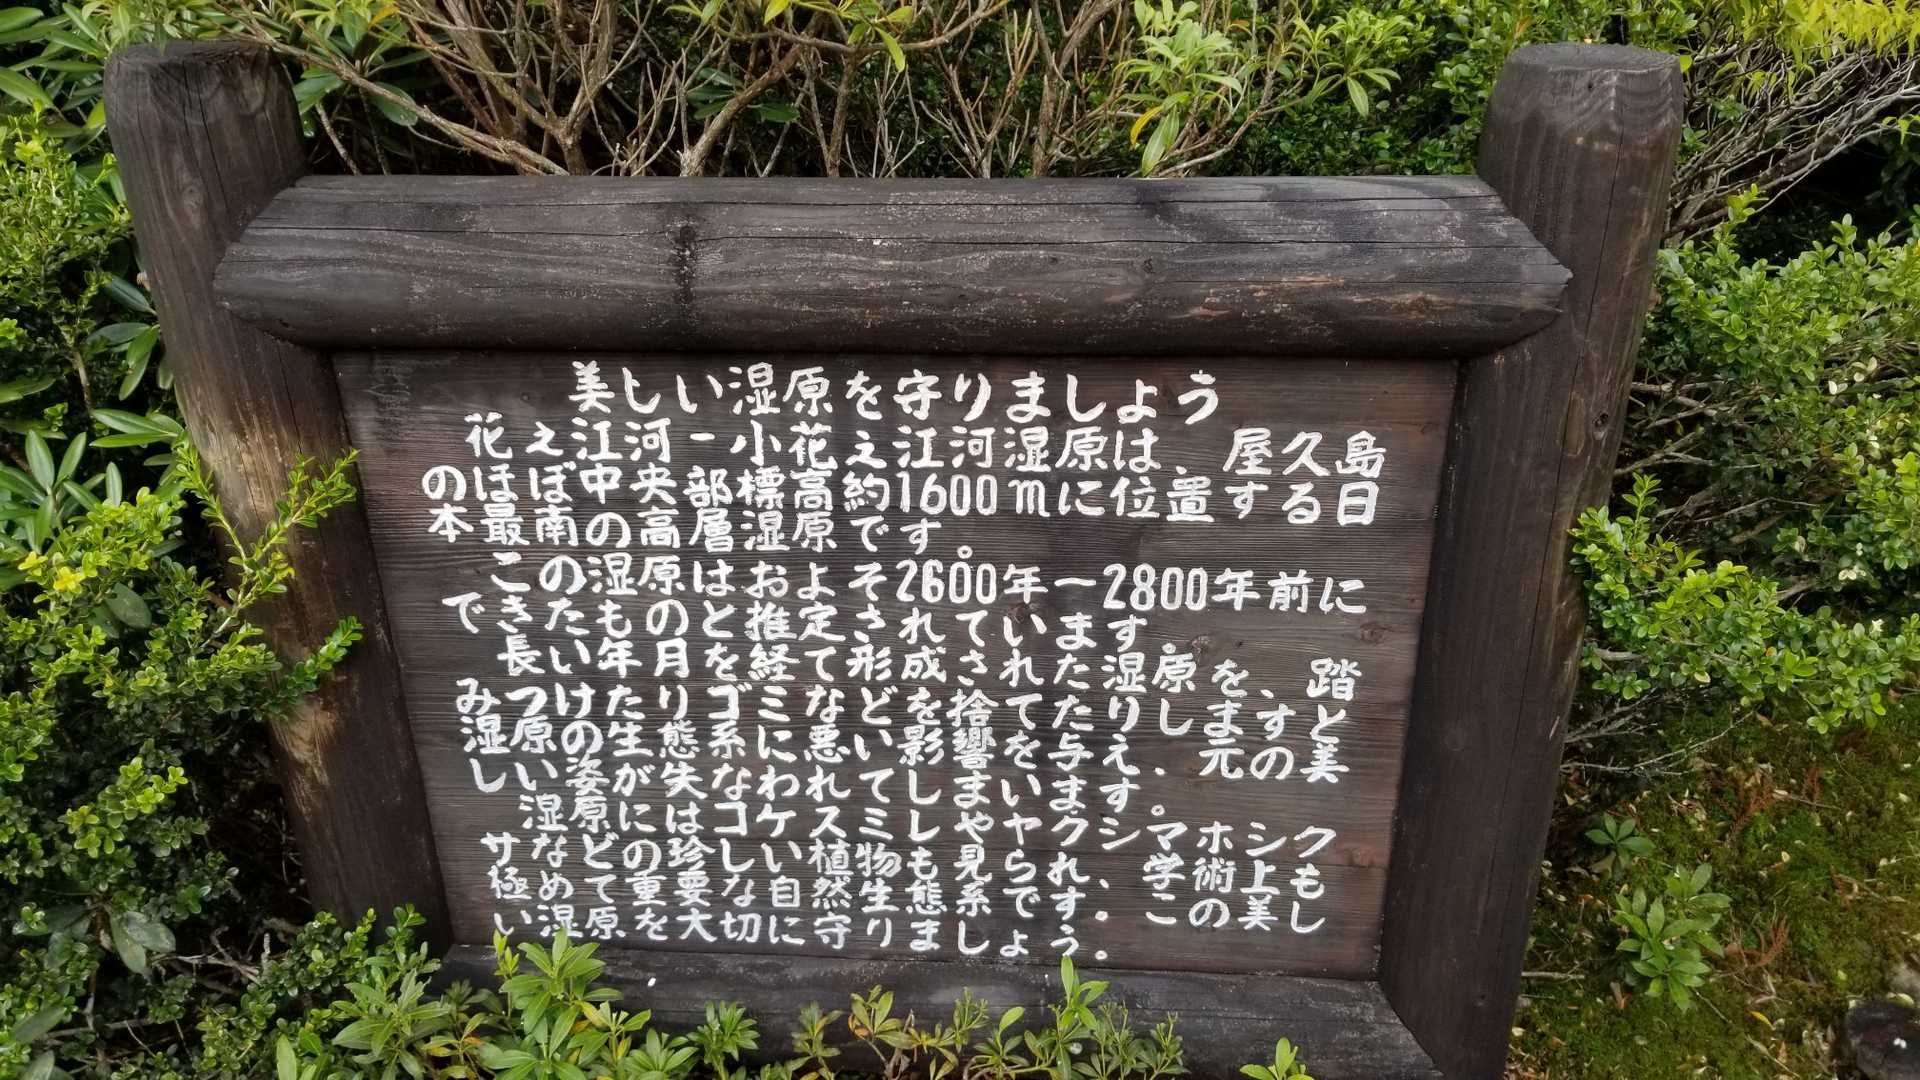 美しい湿原を守りましょう
花え江河ー小花え江河湿原は、屋久島
のほぼ中央部標高約1600mに位置する日
本最南の高層湿原です。
この湿原はおよそ2600年ー2800年前に
できたものと推定されています。
長い年月を経て形成された湿原を、踏
みつけたりゴミなどを捨てたりしますと
湿原の生態系に悪い影響を与え、元の美
しい姿が失なわれてしまいます。
湿原にはコケスミしやヤクシマホシク
サなどの珍しい植物も見られ、学術上も
極めて重要な自然生態系です。この美し
い湿原を大切に守りましょう。